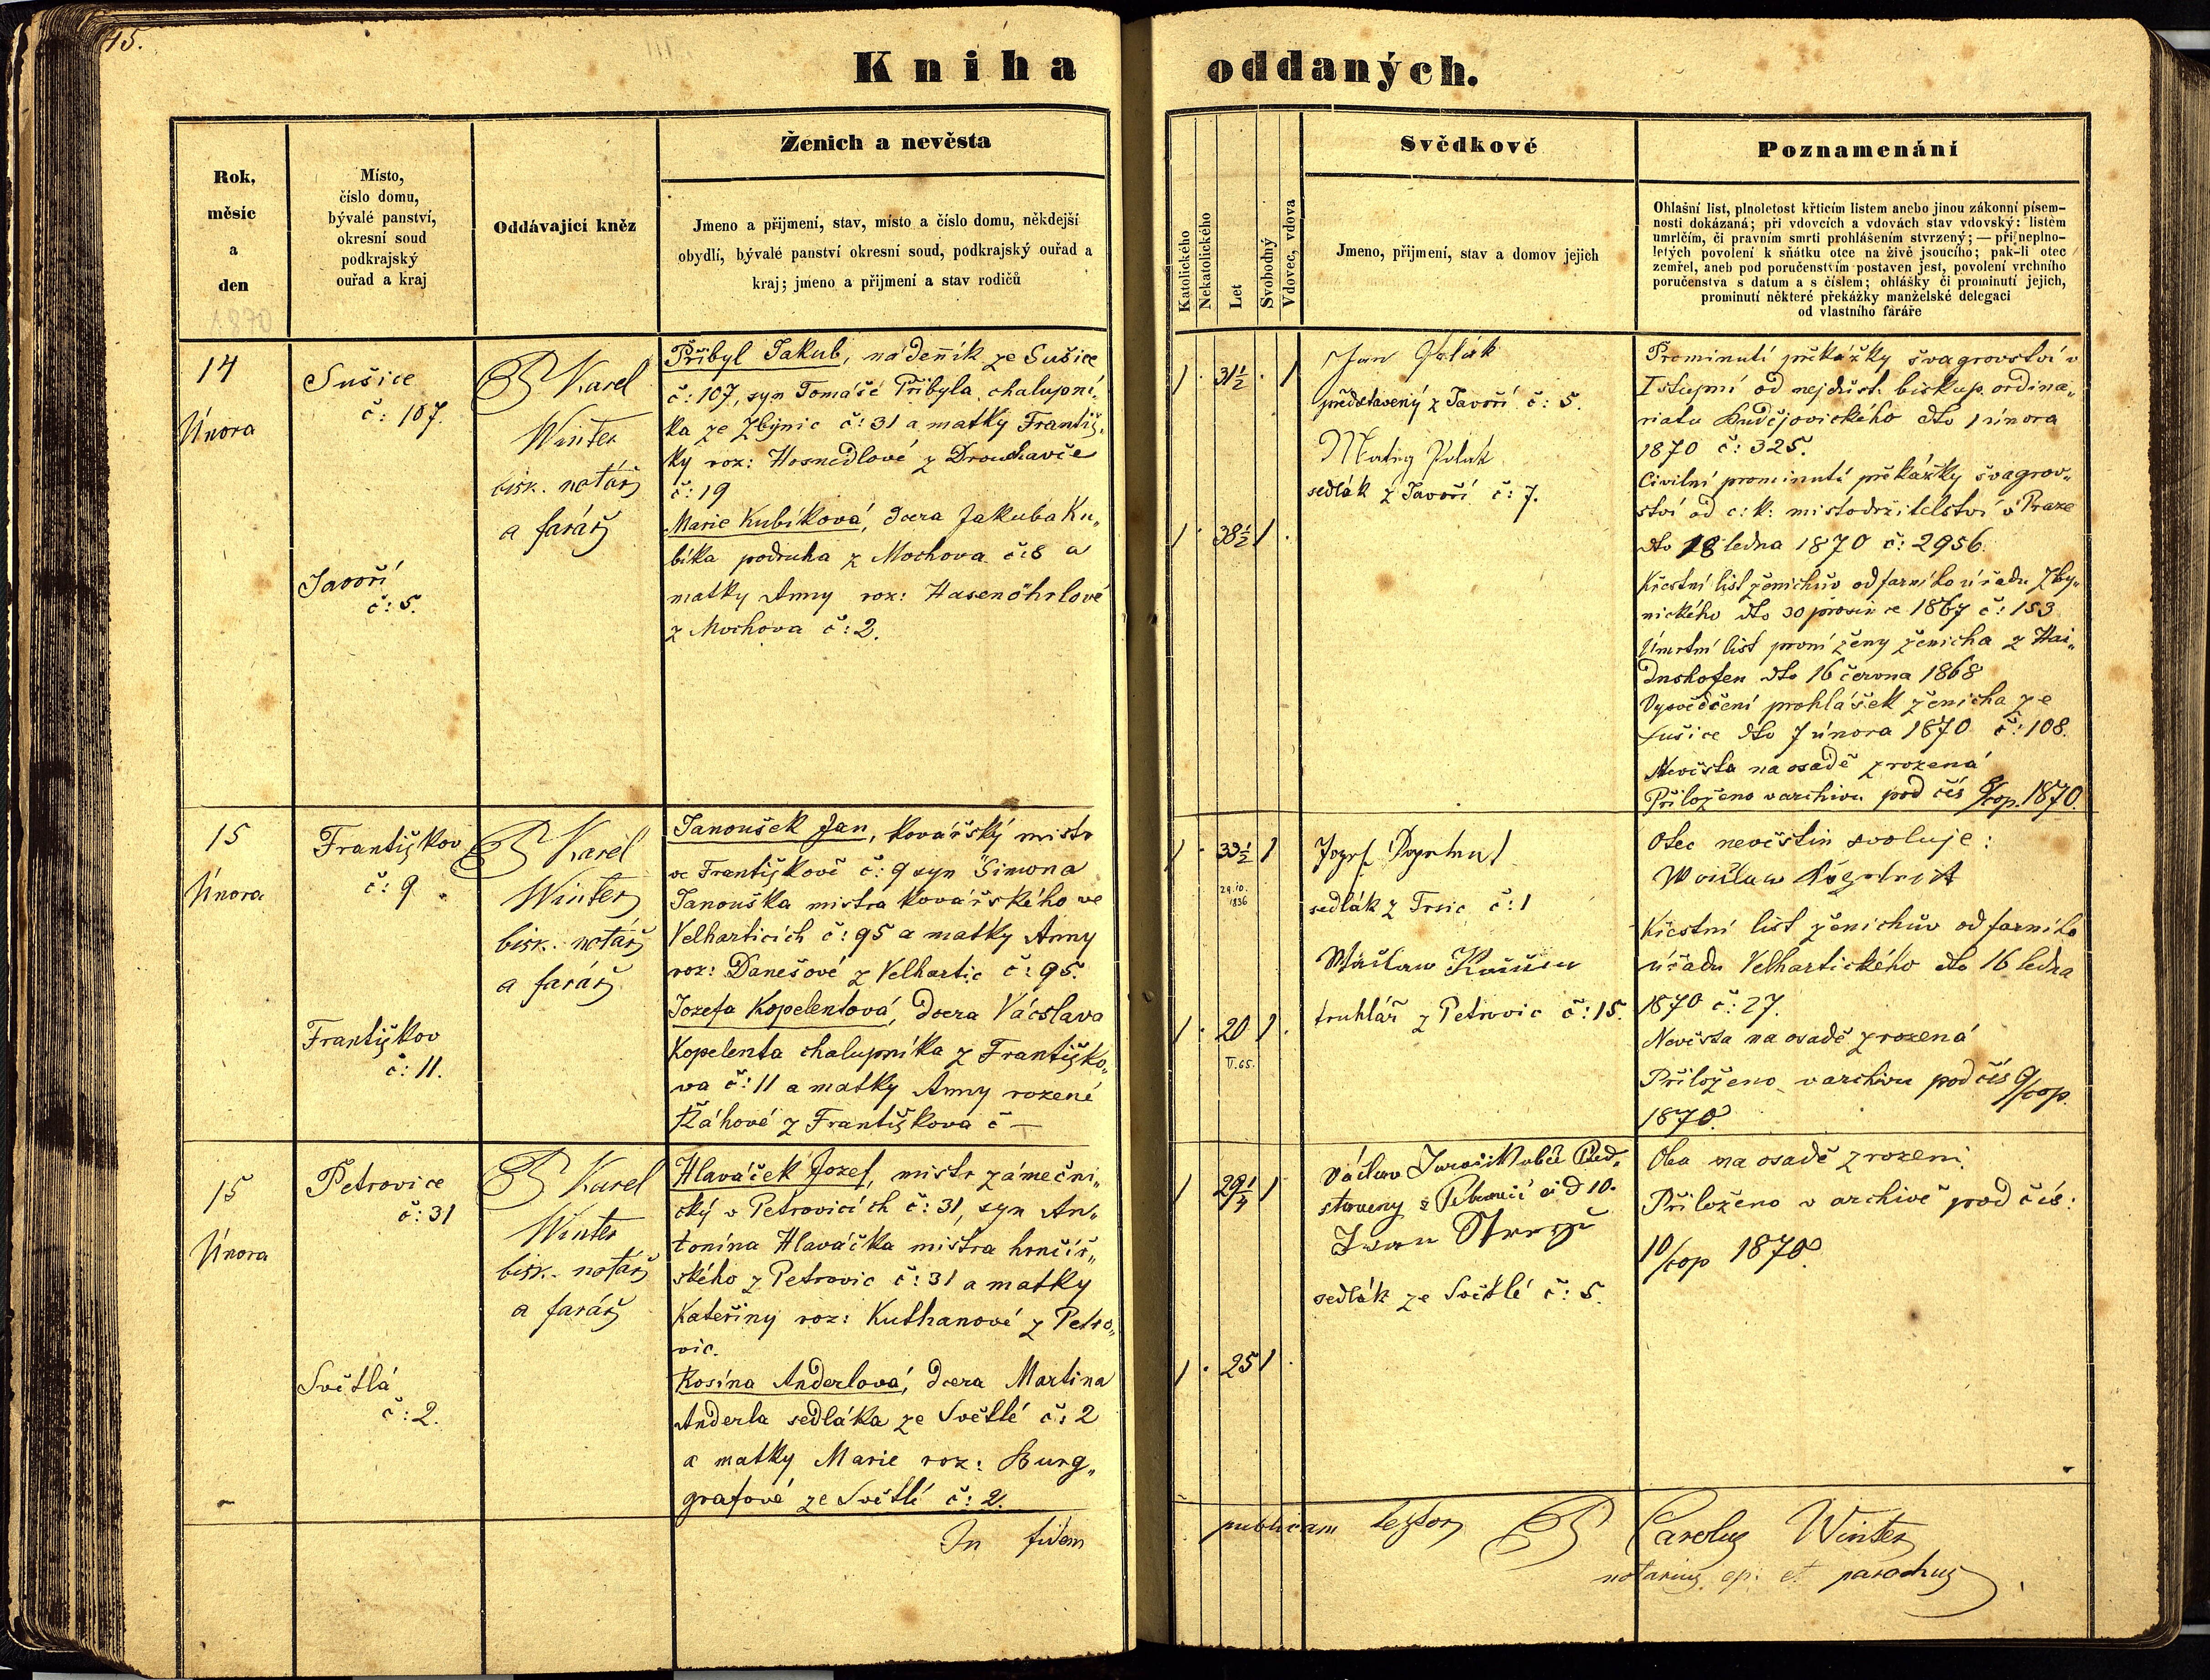 15.
Kniha oddaných.
Rok,
měsíc
a
den
1870
Místo,
číslo domu,
bývalé panství,
okresní soud
podkrajský
ouřad a kraj
Oddávající kněz
Ženich a nevěsta
Jmeno a přijmení, stav, místo a číslo domu, někdejší
obydlí, bývalé panství okresní soud, podkrajský ouřad a
kraj; jmeno a přijmení a stav rodičů
Katolického
Nekatolického
Let
Svobodný
Vdovec, vdova
Svědkové
Jmeno, přijmení, stav a domov jejich
Poznamenání
Ohlašní list, plnoletost křticím listem anebo jinou zákonní písem-
ností dokázaná; při vdovcích a vdovách stav vdovský: listem
umrlčím, či pravním smrti prohlášením stvrzený; — při neplno-
letých povolení k sňátku otce na živě jsoucího; pak-li otec
zemřel, aneb pod poručenstvím postaven jest, povolení vrchního
poručenstva s datum a s číslem; ohlášky či prominutí jejich,
prominutí některé překážky manželské delegací
od vlastního faráře
14
Února
Sušice
č: 107.
Javoří
č: 5.
Karel
Winter
bisk. notář
a farář
Přibyl Jakub, nádenník ze Sušice
č: 107, syn Tomáše Přibyla, chalupní„
ka ze Zbynic č: 31 a matky Františ„
ky roz: Hosnedlové z Drouhavče
č: 19
Marie Kubíková, dcera Jakuba Ku„
bíka podruha z Mochova č: 8 a
matky Anny roz: Hasenöhrlové
z Mochova č: 2.
1 . 31½ . 1
1 . 38½ 1 .
Jan Polák
představený z Javoří č: 5.
Matěj Polák
sedlák z Javoří č: 7.
Prominutí překážky švagrovství v
I stupni od nejdůst. biskup. ordina„
riatu Budějovického dto 1 února
1870 č: 325.
Civilní prominutí překážky švagrov„
ství od c: k: místodržitelství v Praze
dto 18 ledna 1870 č: 2956.
Křestní list ženichův od farního úřadu Zby„
nického dto 30 prosince 1867 č: 153
Úmrtní list první ženy ženicha z Hai„
dnshofen dto 16 června 1868
Vysvědčení prohlášek ženicha ze
Sušice dto 7 února 1870 č: 108.
Nevěsta na osadě zrozená
Přiloženo v archivu pod čís 8/cop. 1870.
15
Února
Františkov
č: 9
Františkov
č: 11.
Karel
Winter
bisk. notář
a farář
Janoušek Jan, kovářský mistr
ve Františkově č: 9 syn Šimona
Janouška mistra kovářského ve
Velharticích č: 95 a matky Anny
roz: Danešové z Velhartic č: 95.
Jozefa Kopelentová, dcera Václava
Kopelenta chalupníka z Františko„
va č: 11 a matky Anny rozené
Ráhové z Františkova č —
1 . 33½ 1
29.10.
1836
1 . 20 1 .
sedlák z Trsic č: 1
truhlář z Petrovic č: 15.
Otec nevěstin svoluje:
Křestní list ženichův od farního
úřadu Velhartického dto 16 ledna
1870 č: 27.
Nevěsta na osadě zrozená
Přiloženo v archivu pod čís 9/cop.
1870.
15
Února
Petrovice
č: 31
Světlá
č: 2.
Karel
Winter
bisk. notář
a farář
Hlaváček Jozef, mistr zámečni„
cký v Petrovicích č: 31, syn An„
tonína Hlaváčka mistra hrnčíř„
ského z Petrovic č: 31 a matky
Kateřiny roz: Kuthanové z Petro„
vic.
Rosina Anderlová, dcera Martina
Anderla sedláka ze Světlé č: 2
a matky Marie roz: Burg„
grafové ze Světlé č: 2.
1 29¼ 1
1 . 25 1 .
Václav
sedlák ze Světlé č: 5.
Oba na osadě zrozeni.
Přiloženo v archivě pod čís:
10/cop 1870.
In fidem publicam testor Carolus Winter
notarius ep: et parochus